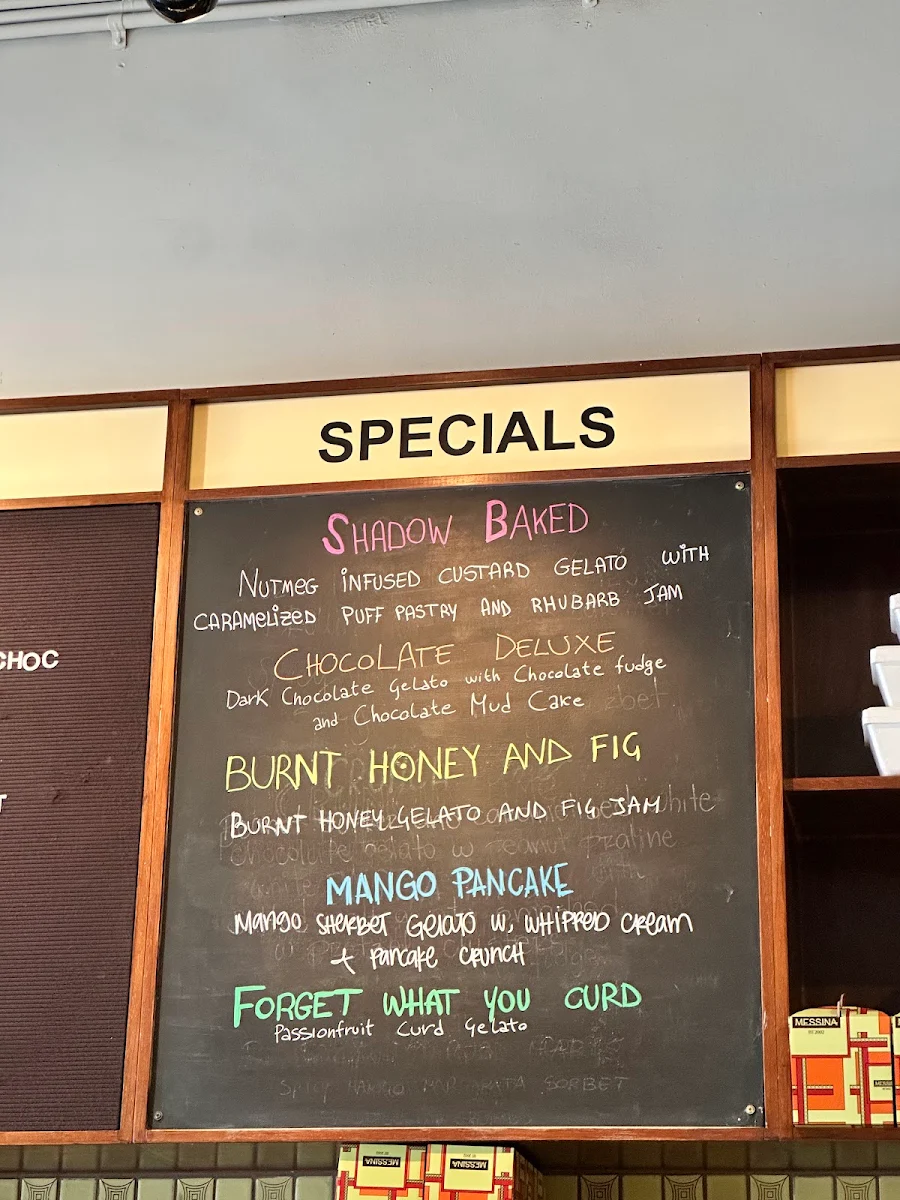 SPECIALS
SHADOW BAKED
NUTMEG INFUSED CUSTARD GELATO WITH
CARAMELIZED PUFF PASTRY AND RHUBARB JAM
CHOCOLATE DELUXE
Dark Chocolate Gelato with Chocolate fudge
and Chocolate Mud Cake
zbet
BURNT HONEY AND FIG
BURNT HONEY GELATO AND FIG JAM
white
chocolate gelato w peanut praline
MANGO PANCAKE
Mango SHERBET GELATO W, WHIPPED CREAM
+ PANCAKE CRUNCH
FORGET WHAT YOU CURD
Passionfruit Curd Gelato
SPICY MANGO MARGARATA SORBET
CHOC
T
MESSINA
MESSINA
MESSINA
MESSINA